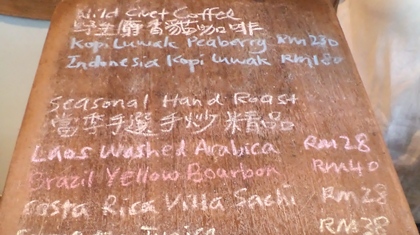 Wild Civet Coffee
野生麝香貓咖啡
Kopi Luwak Peaberry RM230
Indonesia Kopi Luwak RM180
Seasonal Hand Roast
當季手選手炒 精品
Laos Washed Arabica RM28
Brazil Yellow Bourbon RM40
Costa Rica Villa Sachi RM28
RM38